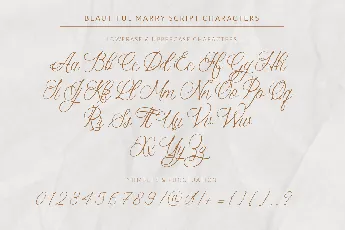 BEAUTIFUL MARRY SCRIPT CHARACTERS
LOWERCASE & UPPERCASE CHARACTERS
Aa Bb Cc Dd Ee Ff Gg Hh
Ii Jj Kk Ll Mm Nn Oo Pp Qq
Rr Ss Tt Uu Vv Ww
Xx Yy Zz
0 1 2 3 4 5 6 7 8 9